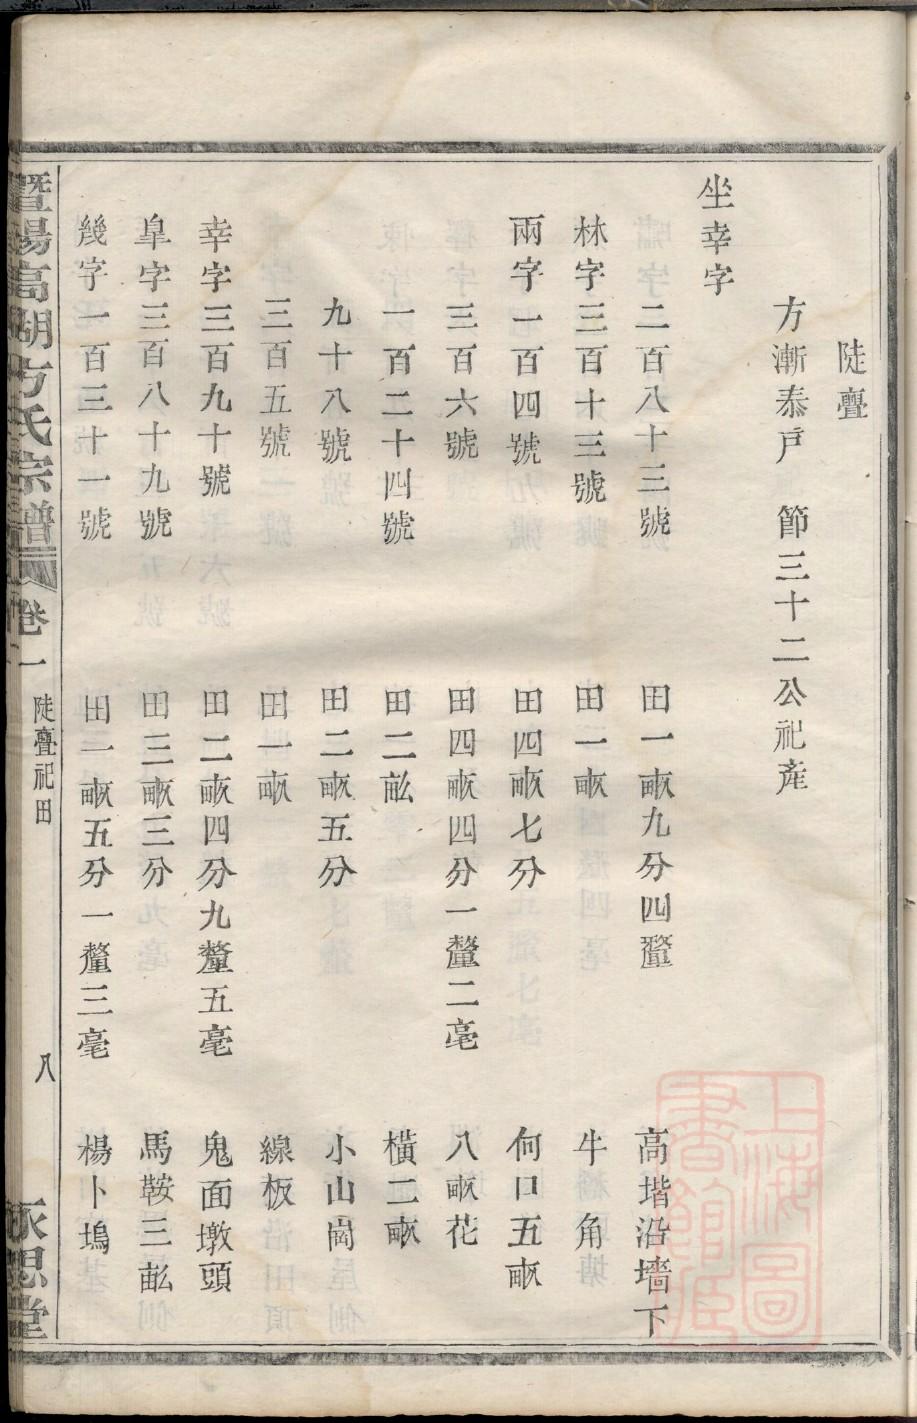 陡亹
方漸泰戶　節三十二公祀產
坐幸字
二百八十三號　田一畝九分四釐　高堦沿墻下
林字三百十三號　田一畝　牛角
兩字一百四號　田四畝七分　何口五畝
三百六號　田四畝四分一釐二毫　八畝花
一百二十四號　田二畝　橫二畝
九十八號　田二畝五分　小山崗
三百五號　田一畝　線板
幸字三百九十號　田二畝四分九釐五毫　鬼面墩頭
阜字三百八十九號　田三畝三分　馬鞍三畝
幾字一百三十一號　田一畝五分一釐三毫　楊卜塢
暨陽高湖方氏宗譜　卷一　陡亹祀田　八　永思堂
上海圖書館藏